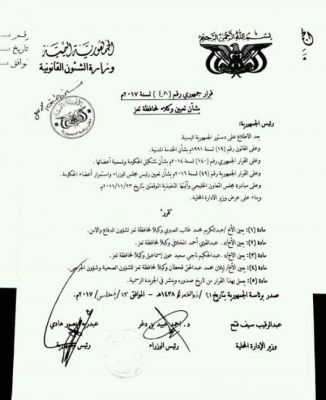 بسم الله الرحمن الرحيم
الجمهورية اليمنية
وزارة الشئون القانونية
رقم
تاريخ
قرار جمهوري رقم (٤٨) لسنة ٢٠١٧م
بشأن تعيين وكلاء لمحافظة تعز
رئيس الجمهورية:
بعد الاطلاع على دستور الجمهورية اليمنية.
وعلى القانون رقم (١٩) لسنة ١٩٩١م بشأن الخدمة المدنية.
وعلى القرار الجمهوري رقم (١٤٠) لسنة ٢٠١٤م بشأن تشكيل الحكومة وتسمية أعضائها.
وعلى القرار الجمهوري رقم (٤٩) لسنة ٢٠١٦م بشأن تعيين رئيس مجلس الوزراء واستمرار أعضاء الحكومة.
وعلى مبادرة مجلس التعاون الخليجي وآليتها التنفيذية الموقعتين بتاريخ ٢٠١١/١١/٢٣م.
وبناء على عرض وزير الإدارة المحلية.
"قرر"
مادة (١): يعين الأخ/ عبدالكريم محمد غالب الصبري وكيلاً لمحافظة تعز لشؤون الدفاع والأمن.
مادة (٢): يعين الأخ/ عبدالقوي أحمد المخلافي وكيلاً لمحافظة تعز.
مادة (٣): يعين الأخ/ عبدالحكيم ناجي سعيد عون وكيلاً لمحافظة تعز.
مادة (٤): يعين الأخ/ محمد عبدالحق وكيلاً لمحافظة تعز للشؤون الصحية وشؤون الجرحى.
مادة (٥): يعمل بهذا القرار من تاريخ صدوره وينشر في الجريدة الرسمية.
صدر برئاسة الجمهورية بتاريخ ١٤٣٨هـ الموافق ٢٠١٧م
عبدالرقيب سيف فتح
د. أحمد عبيد بن دغر
عبدربه منصور هادي
وزير الإدارة المحلية
رئيس الوزراء
رئيس الجمهورية